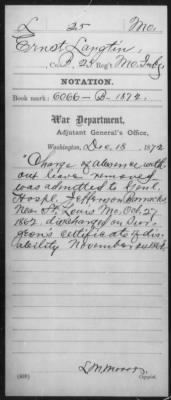 L 25 Mo.
Ernst Langtin,
Co. B, 25 Reg't Mo. Inf.
NOTATION.
Book mark: 6066-B-1872.
War Department,
Adjutant General's Office,
Washington, Dec 18, 1872
"Charge of absence with
out leave removed
was admitted to Genl.
Hospl. Jefferson Barracks
Near St. Louis Mo. Oct. 27
1862 discharged on Sur-
geon's certificate of dis-
ability November
Copyist.